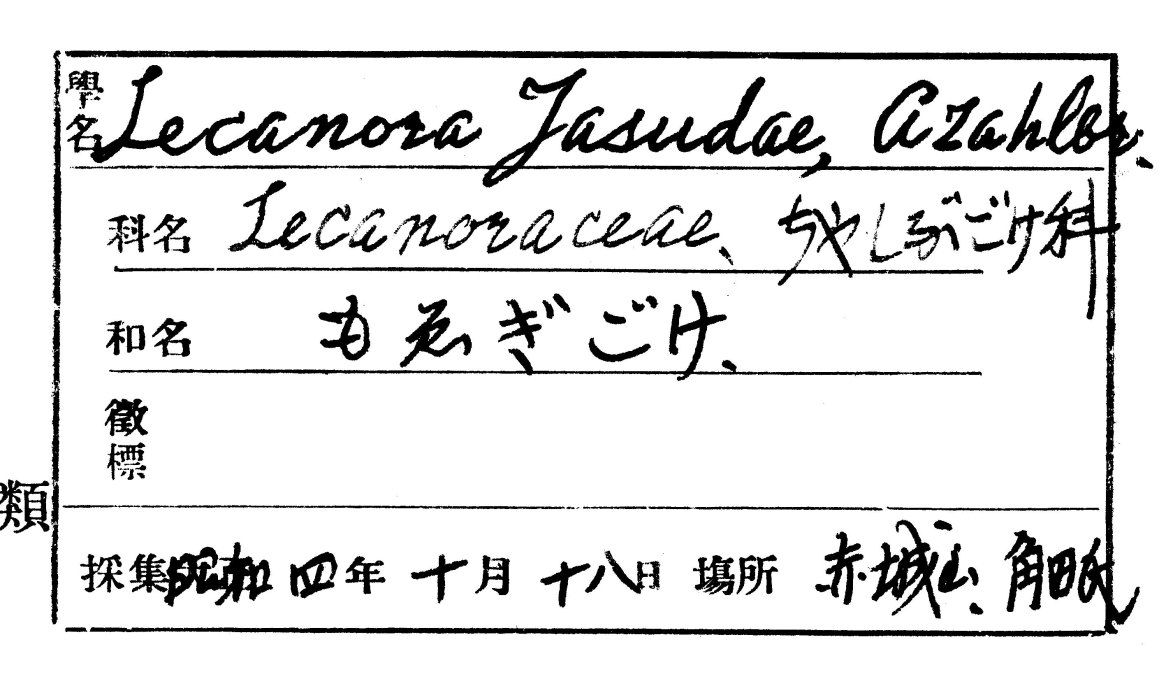 學名 Lecanora Yasudae, Azahlbr.
科名 Lecanoraceae、ちやしぶごけ科
和名 もゑぎごけ、
徽標
類
採集昭和四年十月十八日 場所 赤城山、角田氏